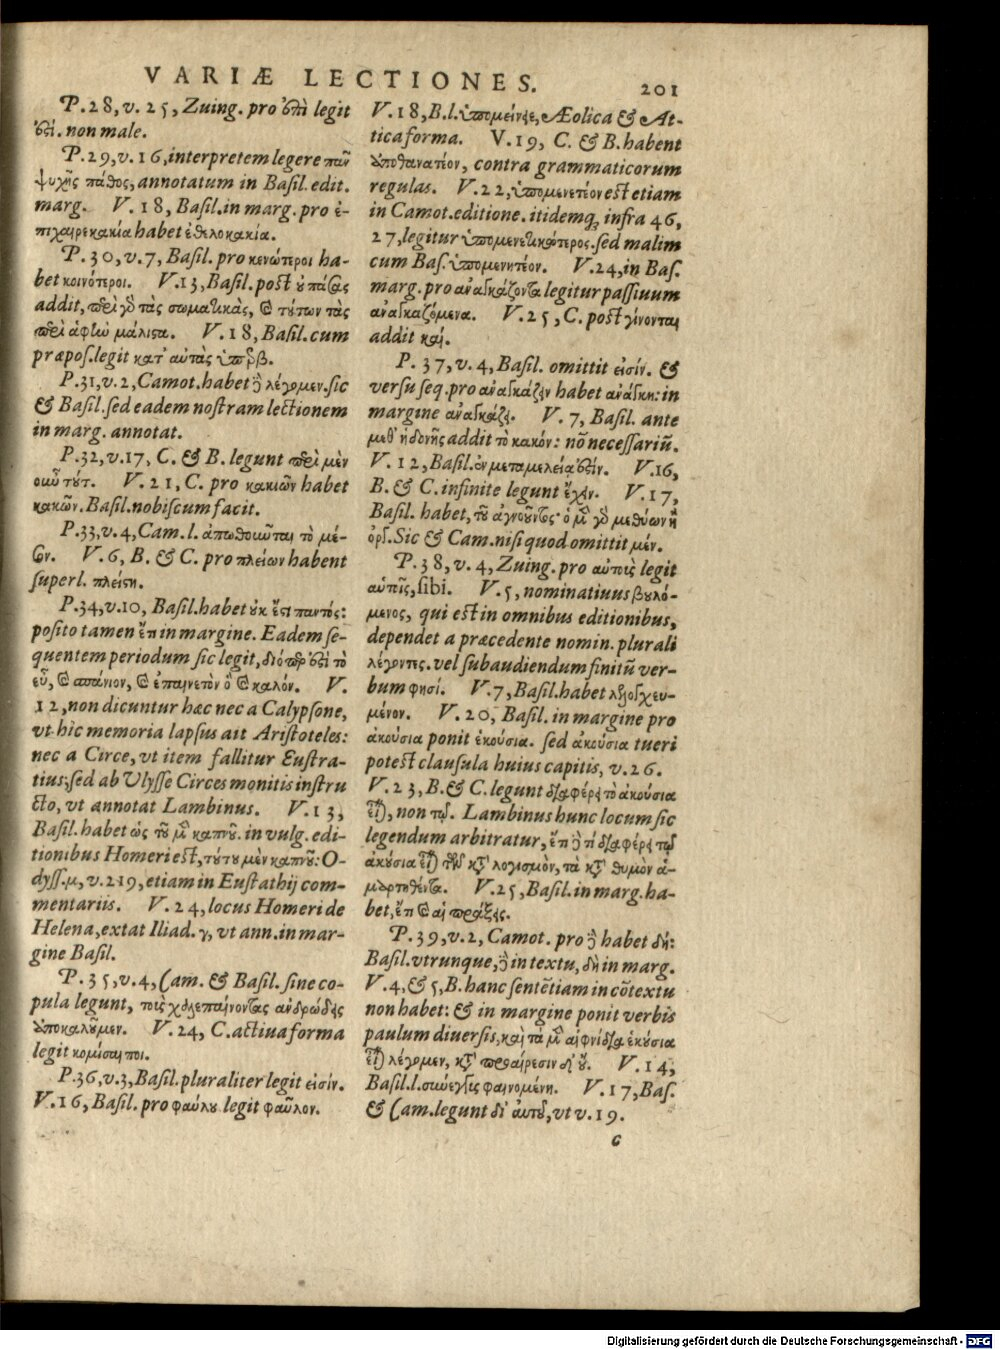 VARIÆ LECTIONES.
201
P.28, v. 25, Zuing. pro ὅτι legit
ἔτι. non male.
P.29, v. 16, interpretem legere πᾶν
ψυχῆς πάθος, annotatum in Basil. edit.
marg. V. 18, Basil. in marg. pro ἐ-
πιχαιρεκακία habet ἐθελοκακία.
P.30, v.7, Basil. pro κενώτεροι ha-
bet κοινότεροι. V.13, Basil. post ὁ πάσας
addit, περὶ γὸ τὰς σωματικὰς, & τούτων τὰς
περὶ ἀφὴν μάλιστα. V. 18, Basil. cum
præpos. legit κατ' αὐτὰς ὑπερβ.
P.31, v.2, Camot. habet ὃ λέγομεν. sic
& Basil. sed eadem nostram lectionem
in marg. annotat.
P.32, v.17, C. & B. legunt περὶ μὲν
οὖν τούτ. V. 21, C. pro κακιῶν habet
κακῶν. Basil. nobiscum facit.
P.33, v.4, Cam. l. ἀπωθοῦται τὸ μέ-
σον. V. 6, B. & C. pro πλείων habent
superl. πλείστη.
P.34, v.10, Basil. habet οὐκ ἔστι παντός:
posito tamen ἔπι in margine. Eadem se-
quentem periodum sic legit, διόπερ ὅτι τὸ
εὖ, & σπάνιον, & ἐπαινετὸν ὃ & καλόν. V.
12, non dicuntur hæc nec a Calypsone,
vt hîc memoria lapsus ait Aristoteles:
nec a Circe, vt item fallitur Eustra-
tius; sed ab Vlysse Circes monitis instru
cto, vt annotat Lambinus. V. 13,
Basil. habet ὡς τοῦ μὲν καπνοῦ. in vulg. edi-
tionibus Homeri est, τούτου μὲν καπνοῦ: O-
dyss. μ, v. 219, etiam in Eustathij com-
mentariis. V. 24, locus Homeri de
Helena, extat Iliad. γ, vt ann. in mar-
gine Basil.
P. 35, v.4, Cam. & Basil. sine co-
pula legunt, τοὺς χαλεπαίνοντας ἀνδρώδεις
ἀποκαλοῦμεν. V. 24, C. actiua forma
legit κομίσαι ποι.
P.36, v.3, Basil. pluraliter legit εἰσίν.
V.16, Basil. pro φαύλου legit φαῦλον.
V. 18, B. l. ὑπομείνειε, Æolica & At-
tica forma. V. 19, C. & B. habent
ἀποθανατέον, contra grammaticorum
regulas. V. 22, ὑπομενετέον est etiam
in Camot. editione. itidemq́; infra 46,
27, legitur ὑπομενετικώτερος. sed malim
cum Bas. ὑπομενητέον. V. 24, in Bas.
marg. pro ἀναγκάζοντα legitur passiuum
ἀναγκαζόμενα. V. 25, C. post γίνονται
addit καί.
P. 37, v. 4, Basil. omittit εἰσίν. &
versu seq. pro ἀναγκάζειν habet ἀνάγκη: in
margine ἀναγκάζει. V. 7, Basil. ante
μεθ' ἡδονῆς addit τὸ κακόν: nō necessariū.
V. 12, Basil. ἐν μεταμελείᾳ ὅτιν. V.16,
B. & C. infinite legunt ἔχειν. V. 17,
Basil. habet, τοῦ ἀγνοοῦντος· ὁ μὲν γὸ μεθύων ἢ
ὀργ. Sic & Cam. nisi quod omittit μέν.
P. 38, v. 4, Zuing. pro αὐτοῖς legit
αὑτοῖς, sibi. V. 5, nominatiuus βουλό-
μενος, qui est in omnibus editionibus,
dependet a præcedente nomin. plurali
λέγοντες. vel subaudiendum finitū ver-
bum φησί. V. 7, Basil. habet λεξοσχευ-
μένον. V. 20, Basil. in margine pro
ἀκούσια ponit ἑκούσια. sed ἀκούσια tueri
potest clausula huius capitis, v. 26.
V. 23, B. & C. legunt διαφέρει τὸ ἀκούσια
εἶ), non τῷ. Lambinus hunc locum sic
legendum arbitratur, ἔτι ὃ τί διαφέρει τῷ
ἀκούσια εἶ) τῶν κτ' λογισμὸν, τὰ κτ' θυμὸν ἁ-
μαρτηθέντα. V. 25, Basil. in marg. ha-
bet, ἔπι & αἱ πράξεις.
P. 39, v. 2, Camot. pro ὃ habet δή:
Basil. vtrunque, ὃ in textu, δὴ in marg.
V. 4, & 5, B. hanc sentētiam in cōtextu
non habet: & in margine ponit verbis
paulum diuersis, καὶ τὰ μὲν αἰφνίδια ἑκούσια
εἶ) λέγομεν, κτ' προαίρεσιν δὲ οὔ. V. 14,
Basil. l. συνεγγὺς φαινομένη. V. 17, Bas.
& Cam. legunt δι' αὐτοῦ, vt v. 19.
c
Digitalisierung gefördert durch die Deutsche Forschungsgemeinschaft - DFG